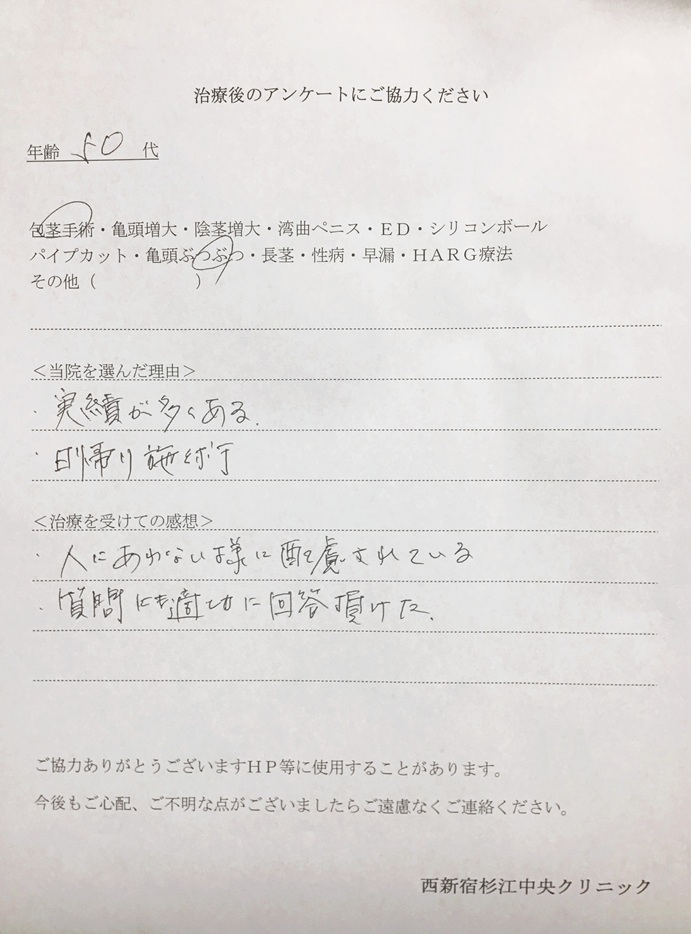 治療後のアンケートにご協力ください
年齢 50 代
包茎手術・亀頭増大・陰茎増大・湾曲ペニス・ED・シリコンボール
パイプカット・亀頭ぶつぶつ・長茎・性病・早漏・HARG療法
その他（　　　　　）
＜当院を選んだ理由＞
・実績が多くある.
・日帰り施術可
＜治療を受けての感想＞
・人にあわない様に配慮されている
・質問にも適切に回答頂けた.
ご協力ありがとうございますHP等に使用することがあります。
今後もご心配、ご不明な点がございましたらご遠慮なくご連絡ください。
西新宿杉江中央クリニック